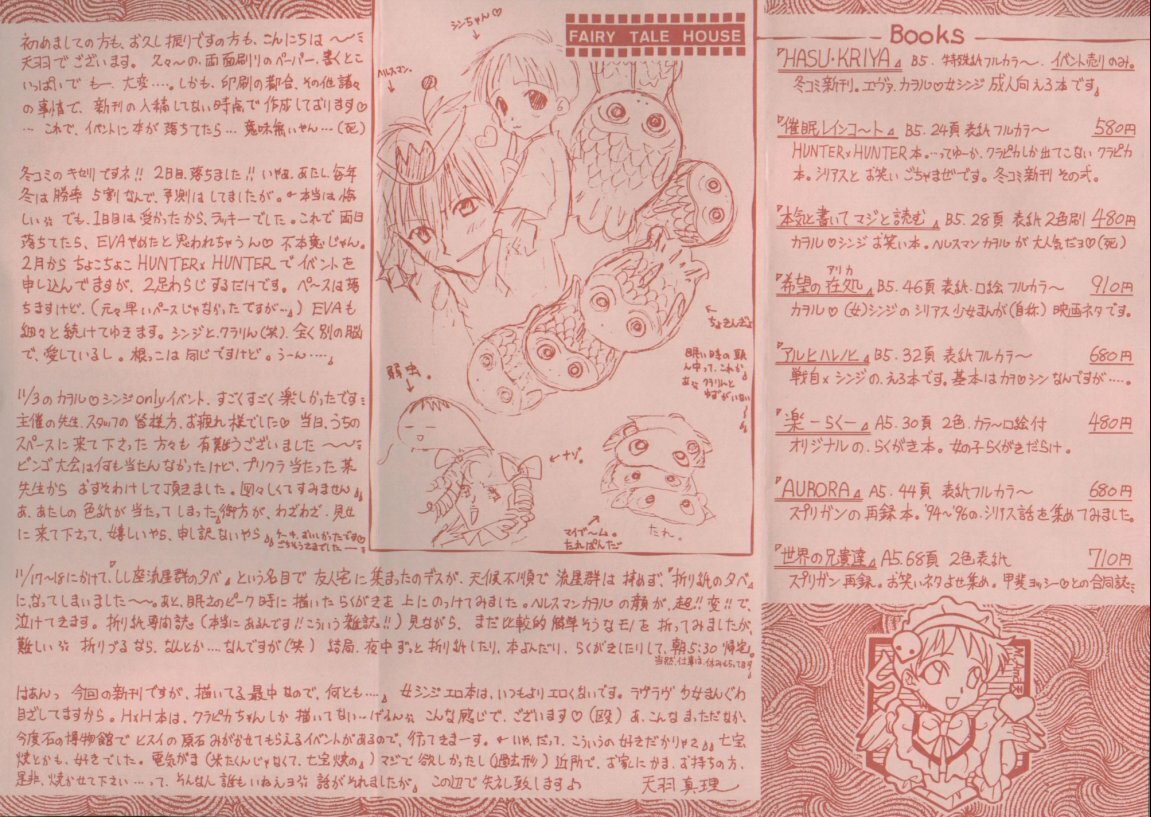 初めましての方も、お久し振りですの方も、こんにちは〜〜
天羽でございます。久々〜の、両面刷りのペーパー、書くとこ
いっぱいで も一 大変‥‥。しかも、印刷の都合、その他諸々
の事情で、新刊の入稿してない時点で作成しております♡
… これで、イベントに本が落ちてたら… 意味無いやん…(死)
冬コミのキセリですネ!! 2日目、落ちました!! いやぁ、あたし、毎年
冬は勝率5割なんで、予測はしてましたが。←本当は悔
しい でも、1日目は受かったから、ラッキーでした。これで両日
落ちてたら、EVAやめたと思われちゃうん♡ 不本意じゃん。
2月から ちょこちょこ HUNTER×HUNTERでイベントを
申し込んでますが、2足わらじするだけです。ペースは落
ちますけど、(元々早いペースじゃなかったですが…』) EVAも
細々と続けてゆきます。シンジと、クラりん(笑)、全く別の脳
で、愛しているし。根っこは同じですけど。うーん‥‥』
11/3のカヲル♡シンジonlyイベント、すごくすごく楽しかったです
主催の先生、スタッフの皆様方、お疲れ様でした♡ 当日、うちの
スペースに来て下さった方々も 有難うございました〜〜
ビンゴ大会は何も当たんなかったけど、プリクラ当たった某
先生から おすそわけして頂きました。図々しくてすみません』
あ、あたしの色紙が当たってしまった御方が、わざわざ、見せ
に来て下さって、嬉しいやら、申し訳ないやら
ケーキ、おいしかったです♡
ごちそうさまでした
11/17〜18にかけて、『しし座流星群の夕べ』という名目で 友人宅に集まったのデスが、天候不順で 流星群は拝めず、『折り紙の夕べ』
になってしまいました〜〜。あと、眠さのピーク時に描いたらくがきを上にのっけてみました。ヘルスマンカヲルの顔が、超!!変!!で、
泣けてきます。折り紙専門誌(本当にあるんです!!こういう雑誌!!)見ながら、まだ比較的簡単そうなモノを折ってみましたが、
難しい 折りづるなら、なんとか‥‥なんですが(笑) 結局、夜中ずっと折り紙したり、本よんだり、らくがきしたりして、朝5:30帰宅。
当然、仕事は休みもらってます
はあんっ 今回の新刊ですが、描いてる最中なので、何とも‥‥』 女シンジエロ本は、いつもよりエロくないです。ラヴラヴ少女まんぐわ
目ざしてますから。H×H本は、クラピカちゃんしか描いてない… こんな感じで、ございます♡(殴) あ、こんなまっただなか、
今度石の博物館でヒスイの原石みがかせてもらえるイベントがあるので、行てきまーす。←いや、だって、こういうの好きだかりゃさ』』七宝
焼とかも、好きでした。電気がま(米たくんじゃなくて、七宝焼の』)マジで欲しかったし(過去形) 近所で、お家にかま、お持ちの方、
是非、焼かせて下さい…って、そんなん誰もいねぇヨ 話がそれましたが』 この辺で失礼致します♪ 天羽真理
シンちゃん♡
ヘルスマン。
FAIRY TALE HOUSE
←
眠い時の頭
ん中って、これか
弱虫。
←ナゾ。
マイブーム。
たれぱんだ
たれ。
Books
『HASU・KRIYA』 B5. 特殊紙フルカラー、イベント売りのみ。
冬コミ新刊。エヴァ、カヲル♡女シンジ 成人向えろ本です』
『催眠レインコート』 B5. 24頁 表紙 フルカラー 580円
HUNTER×HUNTER本。…ってゆーか、クラピカしか出てこない クラピカ
本。シリアスと お笑い ごちゃまぜです。冬コミ新刊 その弐。
『本気と書いて マジと読む』 B5. 28頁 表紙2色刷 480円
カヲル♡シンジお笑い本。ヘルスマンカヲルが大人気だヨ♡(死)
『希望の在処』 B5. 46頁 表紙・口絵 フルカラー 910円
アリカ
カヲル♡(女)シンジの シリアス少女まんが(自称) 映画ネタです。
『アルヒハレノヒ』 B5. 32頁 表紙フルカラー 680円
戦自×シンジの、えろ本です。基本はカヲ♡シンなんですが‥‥。
『楽 ーらくー』 A5. 30頁 2色・カラー口絵付 480円
オリジナルの、らくがき本。女の子らくがきだらけ。
『AURORA』 A5. 44頁 表紙フルカラー 680円
スプリガンの再録本。'94〜'96の、シリアス話を集めてみました。
『世界の兄貴達』 A5. 68頁 2色表紙 710円
スプリガン再録。お笑いネタよせ集め。甲斐ヨッシー♡との合同誌